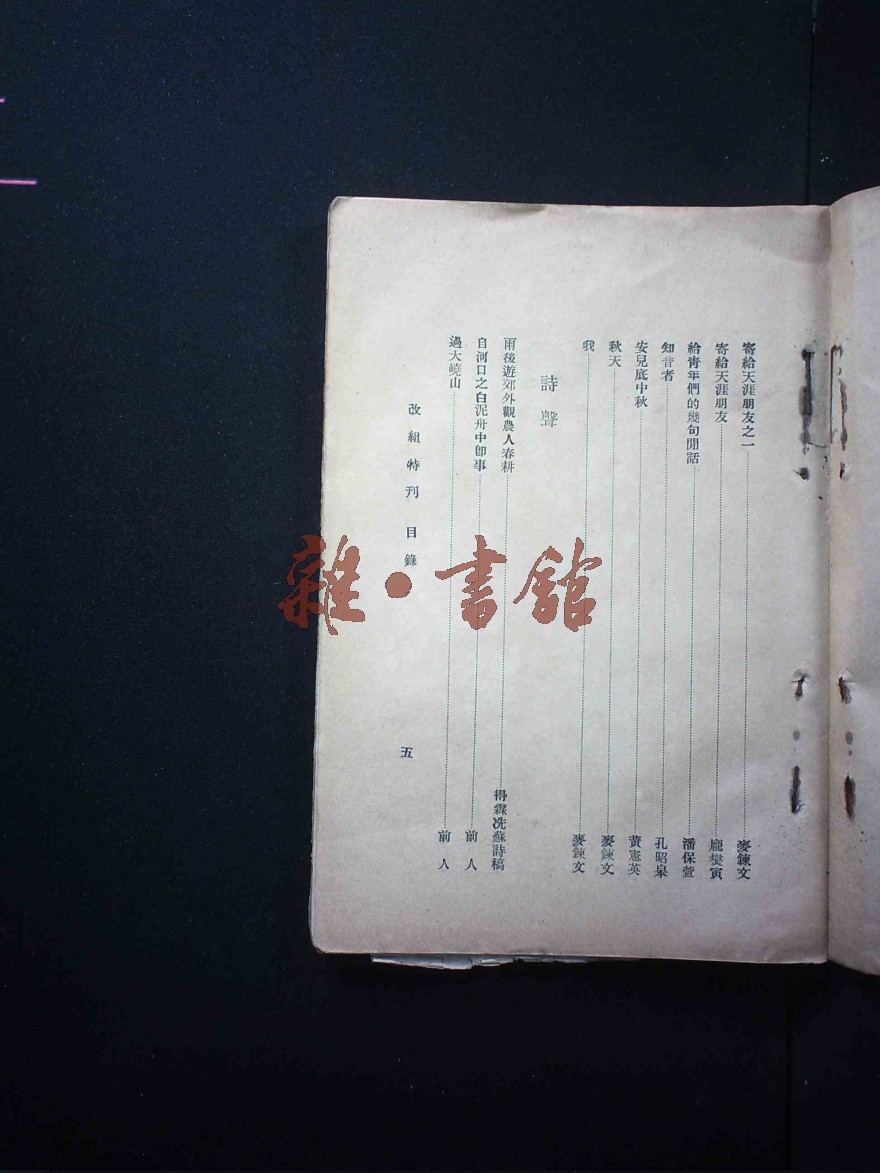 寄給天涯朋友之一 麥鍊文
寄給天涯朋友 龐爕寅
給青年們的幾句閒話 潘保萱
知音者 孔昭皋
安兒底中秋 黃憲英
秋天 麥鍊文
我 麥鍊文
詩聲
雨後遊郊外觀農人春耕 得霖冼蘇詩稿
自河口之白泥舟中卽事 前人
過大嶢山 前人
改組特刊 目錄 五
雜·書館